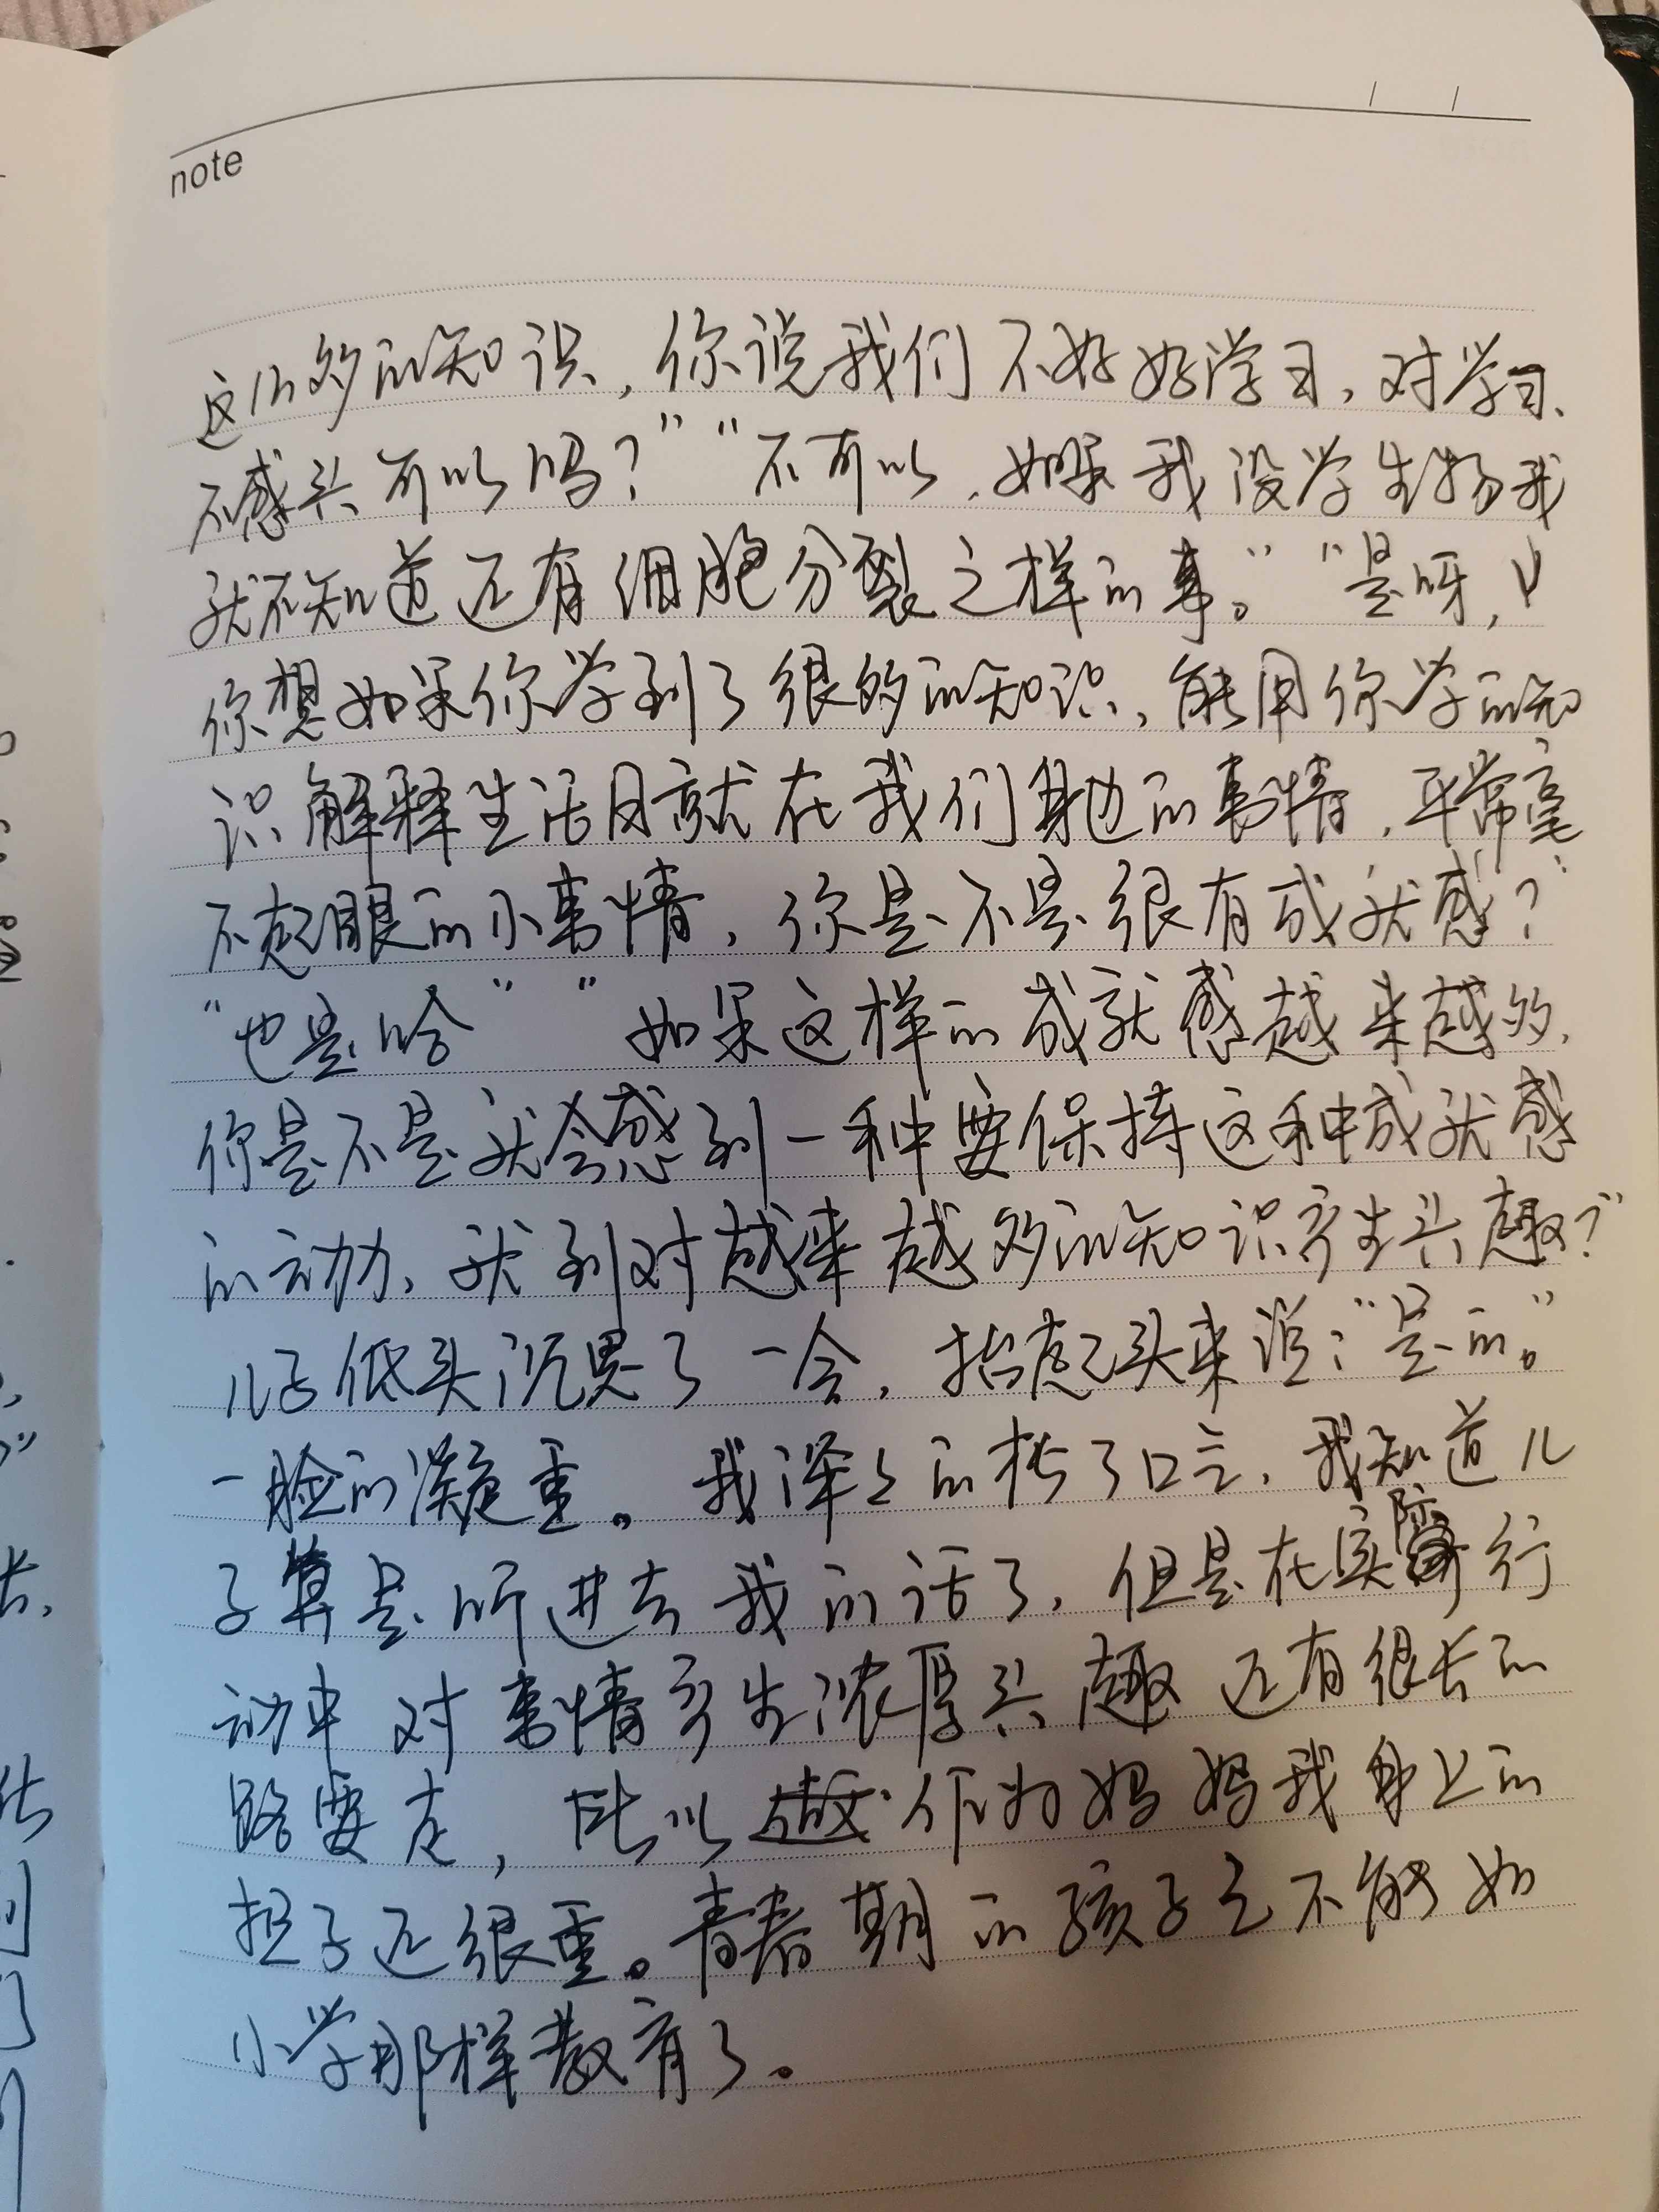 note
这么多的知识，你说我们不好好学习，对学习
不感兴可以吗？”“不可以，如果我没学生物我
就不知道还有细胞分裂之样的事。”“是呀，
你想如果你学到了很多的知识，能用你学的知
识解释生活目就在我们身边的事情，平常毫
不起眼的小事情，你是不是很有成就感？”
“也是哈”“如果这样的成就感越来越多，
你是不是就会感到一种要保持这种成就感
的动力，就到对越来越多的知识产生兴趣？”
儿子低头沉思了一会，抬起头来说：“是的。”
一脸的凝重。我深深的松了口气，我知道儿
子算是听进去我的话了，但是在实际行
动中对事情产生浓厚兴趣还有很长的
路要走，所以作为妈妈我身上的
担子还很重。青春期的孩子之不能如
小学那样教育了。